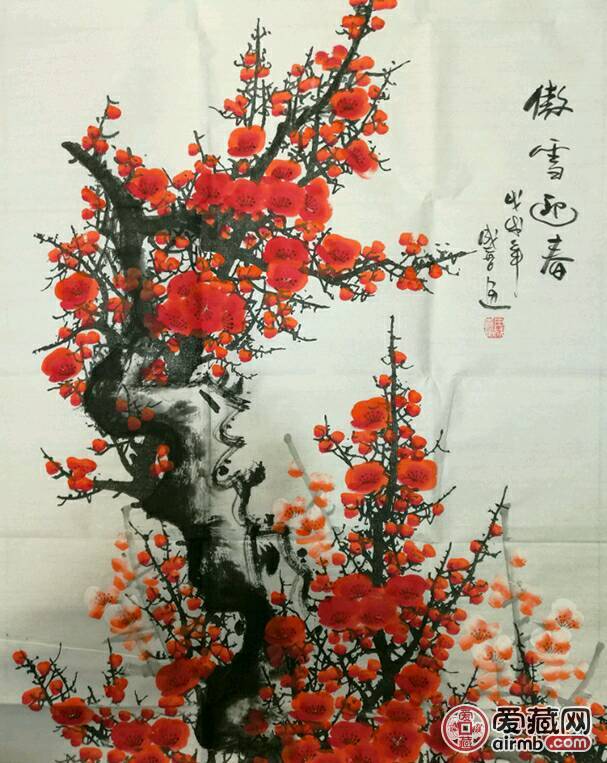 傲雪迎春
戊戌年
爱藏网
airmb.com